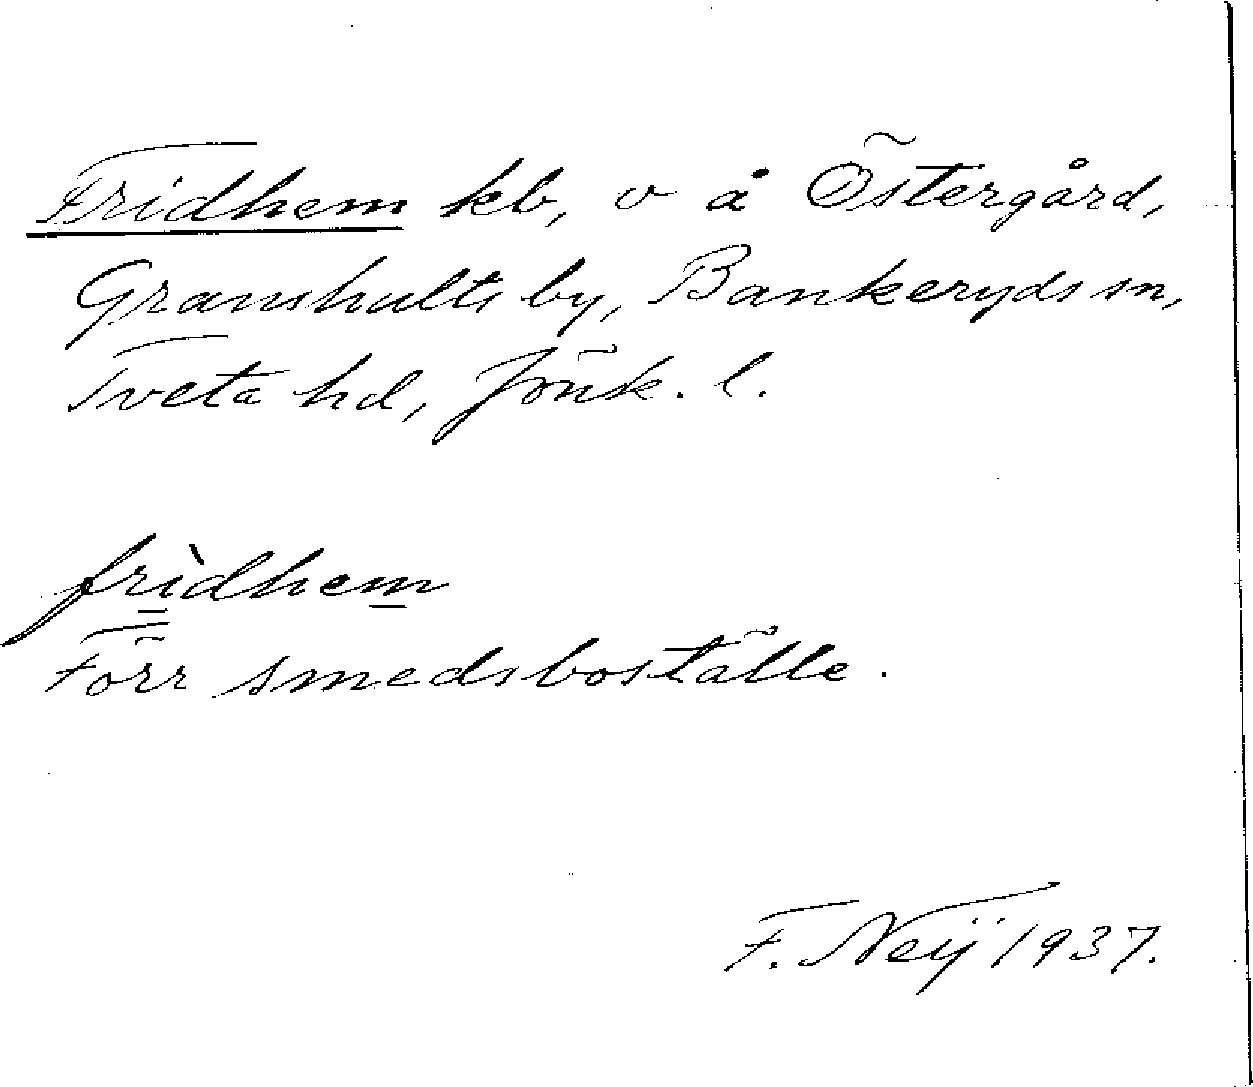 Fridhem kb, v å Östergård,
Granshults by, Bankeryds sn,
Tveta hd, Jönk. l.
frìdhem
Förr smedsboställe.
F. Neij 1937.